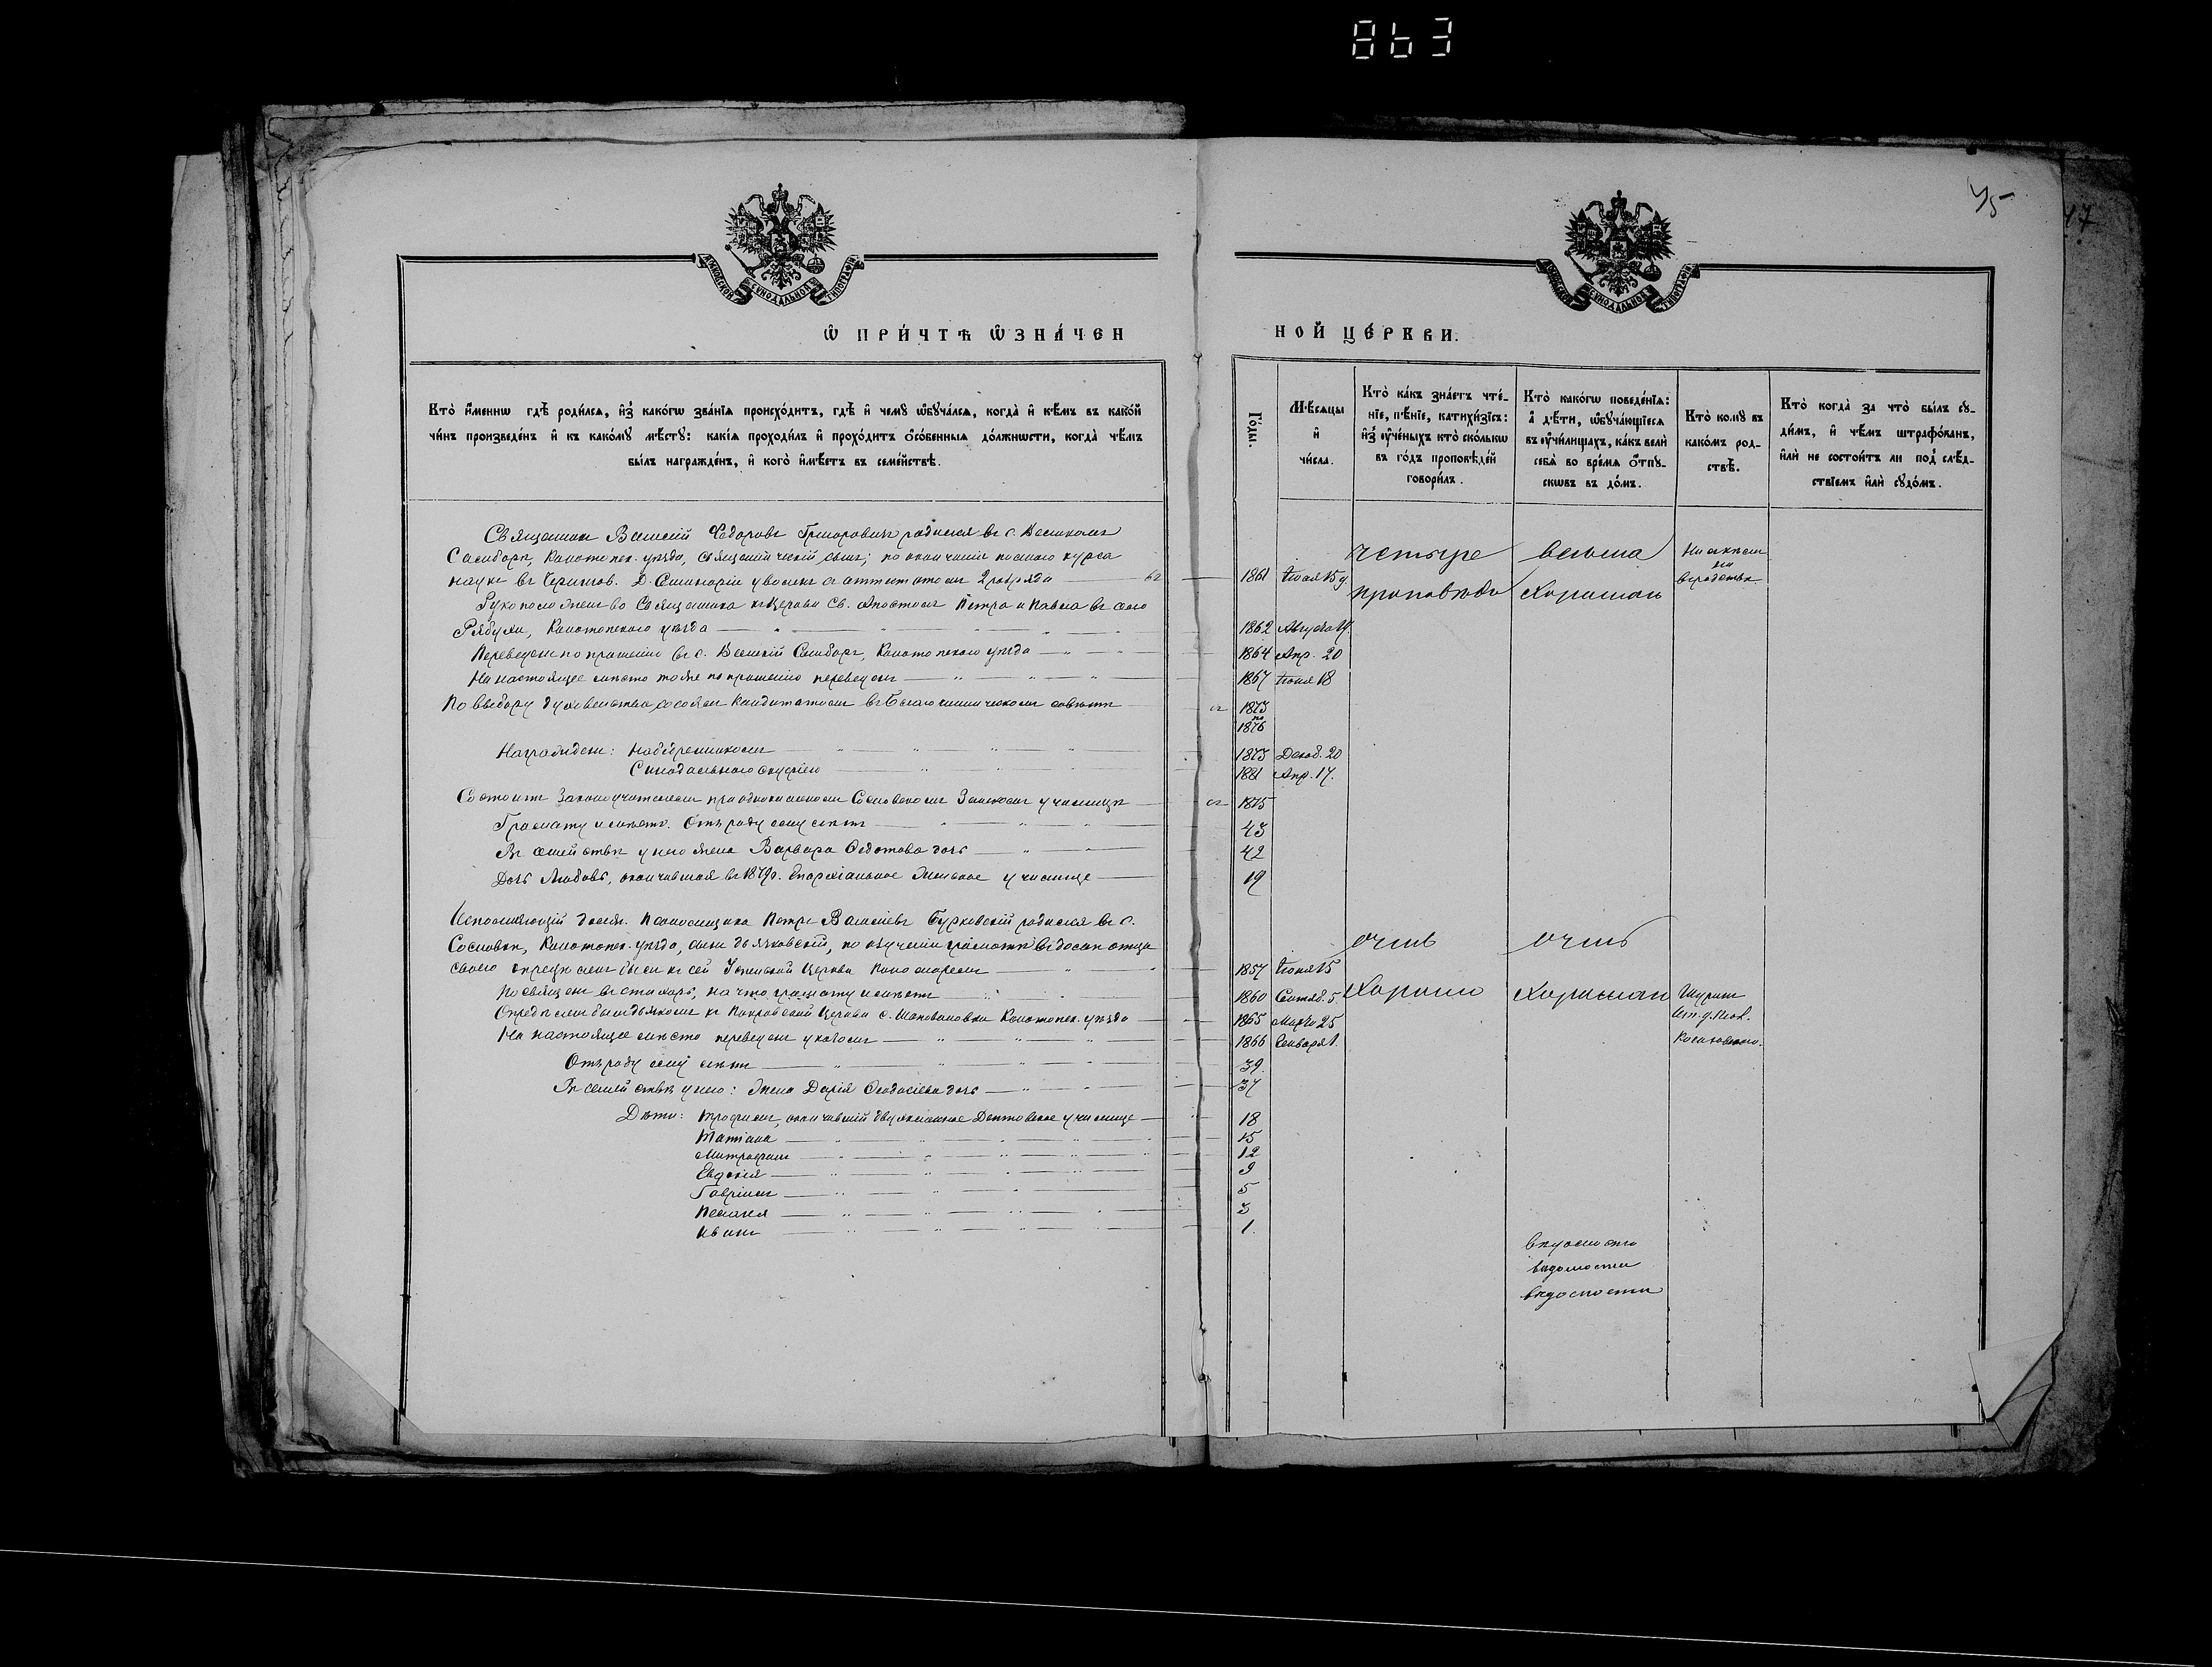 863
45
47
МОСКОВСКОЙ СѴНОДАЛЬНОЙ ТИПОГРАФІИ
МОСКОВСКОЙ СѴНОДАЛЬНОЙ ТИПОГРАФІИ
Ѡ ПРИ́ЧТѢ ѠЗНА́ЧЕН
НОЙ ЦЕ́РКВИ.
Кто̀ и҆́меннѡ гдѣ̀ роди́лсѧ, и҆з̾ како́гѡ зва́нїѧ происхо́дитъ, гдѣ̀ и҆ чемꙋ̀ ѡ҆бꙋча́лсѧ, когда̀ и҆ кѣ́мъ въ како́й
чи́нъ произведе́нъ и҆ къ како́мꙋ мѣ́стꙋ: какі́ѧ проходи́лъ и҆ прохо́дитъ ѻ҆со́бенныѧ до́лжнѡсти, когда̀ чѣ́мъ
бы́лъ награжде́нъ, и҆ кого̀ и҆мѣ́етъ въ семе́йствѣ.
Го́ды.
Мѣ́сѧцы
и҆
чи́сла.
Кто̀ ка́къ зна́етъ чте́-
нїе, пѣ́нїе, катихи́зїсъ:
и҆з̾ ᲂу҆че́ныхъ кто̀ ско́лькѡ
въ го́дъ проповѣ́дей
говори́лъ.
Кто̀ како́гѡ поведе́нїѧ:
а҆ дѣ́ти, ѡ҆бꙋча́ющїесѧ
въ ᲂу҆чи́лищахъ, ка́къ велѝ
себѧ̀ во вре́мѧ ѻ҆́тпꙋ-
скѡвъ въ до́мъ.
Кто̀ комꙋ̀ въ
како́мъ род-
ствѣ̀.
Кто̀ когда̀ за что̀ бы́лъ сꙋ-
ди́мъ, и҆ чѣ́мъ штрафо́ванъ,
и҆лѝ не состои́тъ ли под̾ слѣ́д-
ствїемъ и҆лѝ сꙋдо́мъ.
Священникъ Василій Ѳедоровъ Григоровичъ родился въ с. Великомъ
Самборѣ, Конотопск. уѣзда, священническій сынъ; по окончаніи полнаго курса
наукъ въ Чернигов. Д. Семинаріи уволенъ съ аттестатомъ 2 разряда въ 1861 Іюля 15 д.
четыре весьма
проповѣди хорошаго
Ни съ кѣмъ
не
въ родствѣ
Рукоположенъ во Священника къ Церкви Св. Апостолъ Петра и Павла въ село
Рябухи, Конотопскаго уѣзда 1862 Августа 19.
Переведенъ по прошенію въ с. Великій Самборъ, Конотопскаго уѣзда 1864 Апр. 20
На настоящее мѣсто тоже по прошенію переведенъ 1867 Іюня 18
По выбору духовенства состоялъ Кандитатомъ въ Благочинническомъ совѣтѣ съ 1873
по
1876
Награжденъ: Набедренникомъ 1873 Декаб. 20
Синодальною скуфіею 1881 Апр. 17.
Состоитъ Законоучителемъ при одноклассномъ Сосновскомъ Земскомъ училищѣ съ 1875
Грамату имѣетъ. Отъ роду ему лѣтъ 43
Въ семействѣ у него жена Варвара Федотова дочь 42
Дочь Любовь, окончившая въ 1879 г. Епархіальное Женское училище 19
Исполняющій должн. Псаломщика Петръ Василіевъ Бурковскій родился въ с.
Сосновкѣ, Конотопск. уѣзда, сынъ дьячковскій, по обученіи грамотѣ въ домѣ отца
своего опредѣленъ былъ къ сей Успенской Церкви Пономаремъ 1857 Іюня 15
очень очень
хорошо хорошаго
Посвященъ въ стихарь, на что грамату имѣетъ 1860 Сентяб. 5.
Шуринъ
Исп. д. Псал.
Опредѣленъ былъ дьячкомъ къ Покровской Церкви с. Шаповаловки Конотопск. уѣзда 1865 Марта 25
На настоящее мѣсто переведенъ указомъ 1866 Генваря 1.
Отъ роду ему лѣтъ 39.
Въ семействѣ у него: Жена Дарія Ѳеодосіева дочь 37
Дѣти: Трофимъ, окончившій двухклассное училище 18
Татіана 15
Митрофанъ 12
Евдокія 9
Гавріилъ 5
Пелагія 3
Иванъ 1.
вѣдомости
вѣдомости
вѣдомости